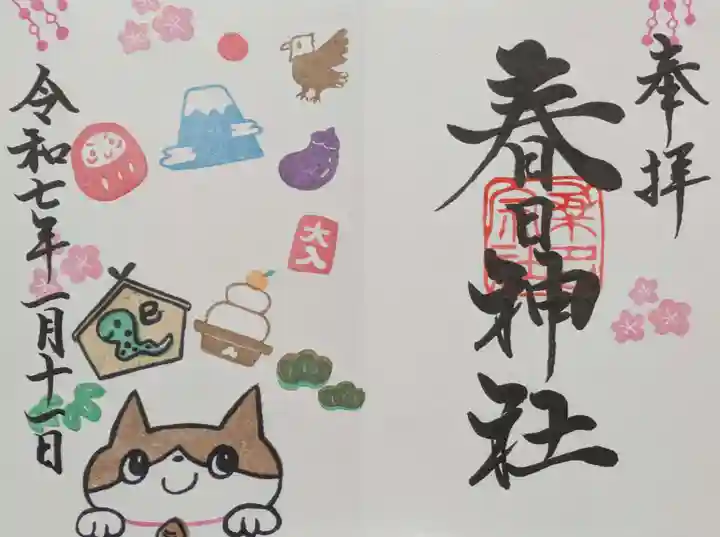 奉拝
春日神社
大入
巳
令和七年一月十一日